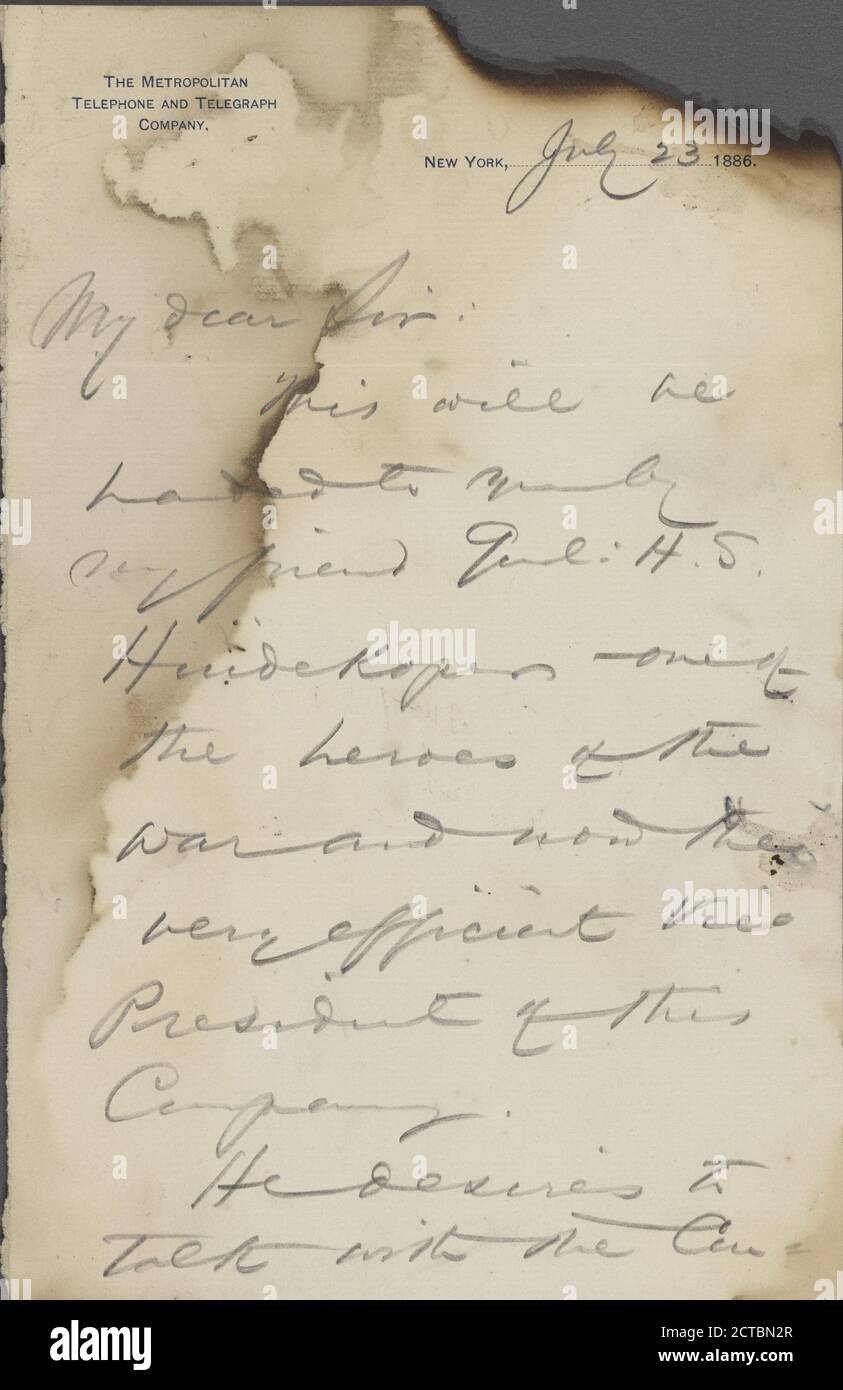 THE METROPOLITAN
TELEPHONE AND TELEGRAPH
COMPANY,
NEW YORK, July 23 1886.
My dear Sir:
This will be
handed to you by
my friend Genl: H. S.
Huidekoper - one of
the heroes of the
war and now the
very efficient Vice
President of this
Company.
He desires to
talk with the Com=
alamy
a
alamy
Image ID: 2CTBN2R
www.alamy.com